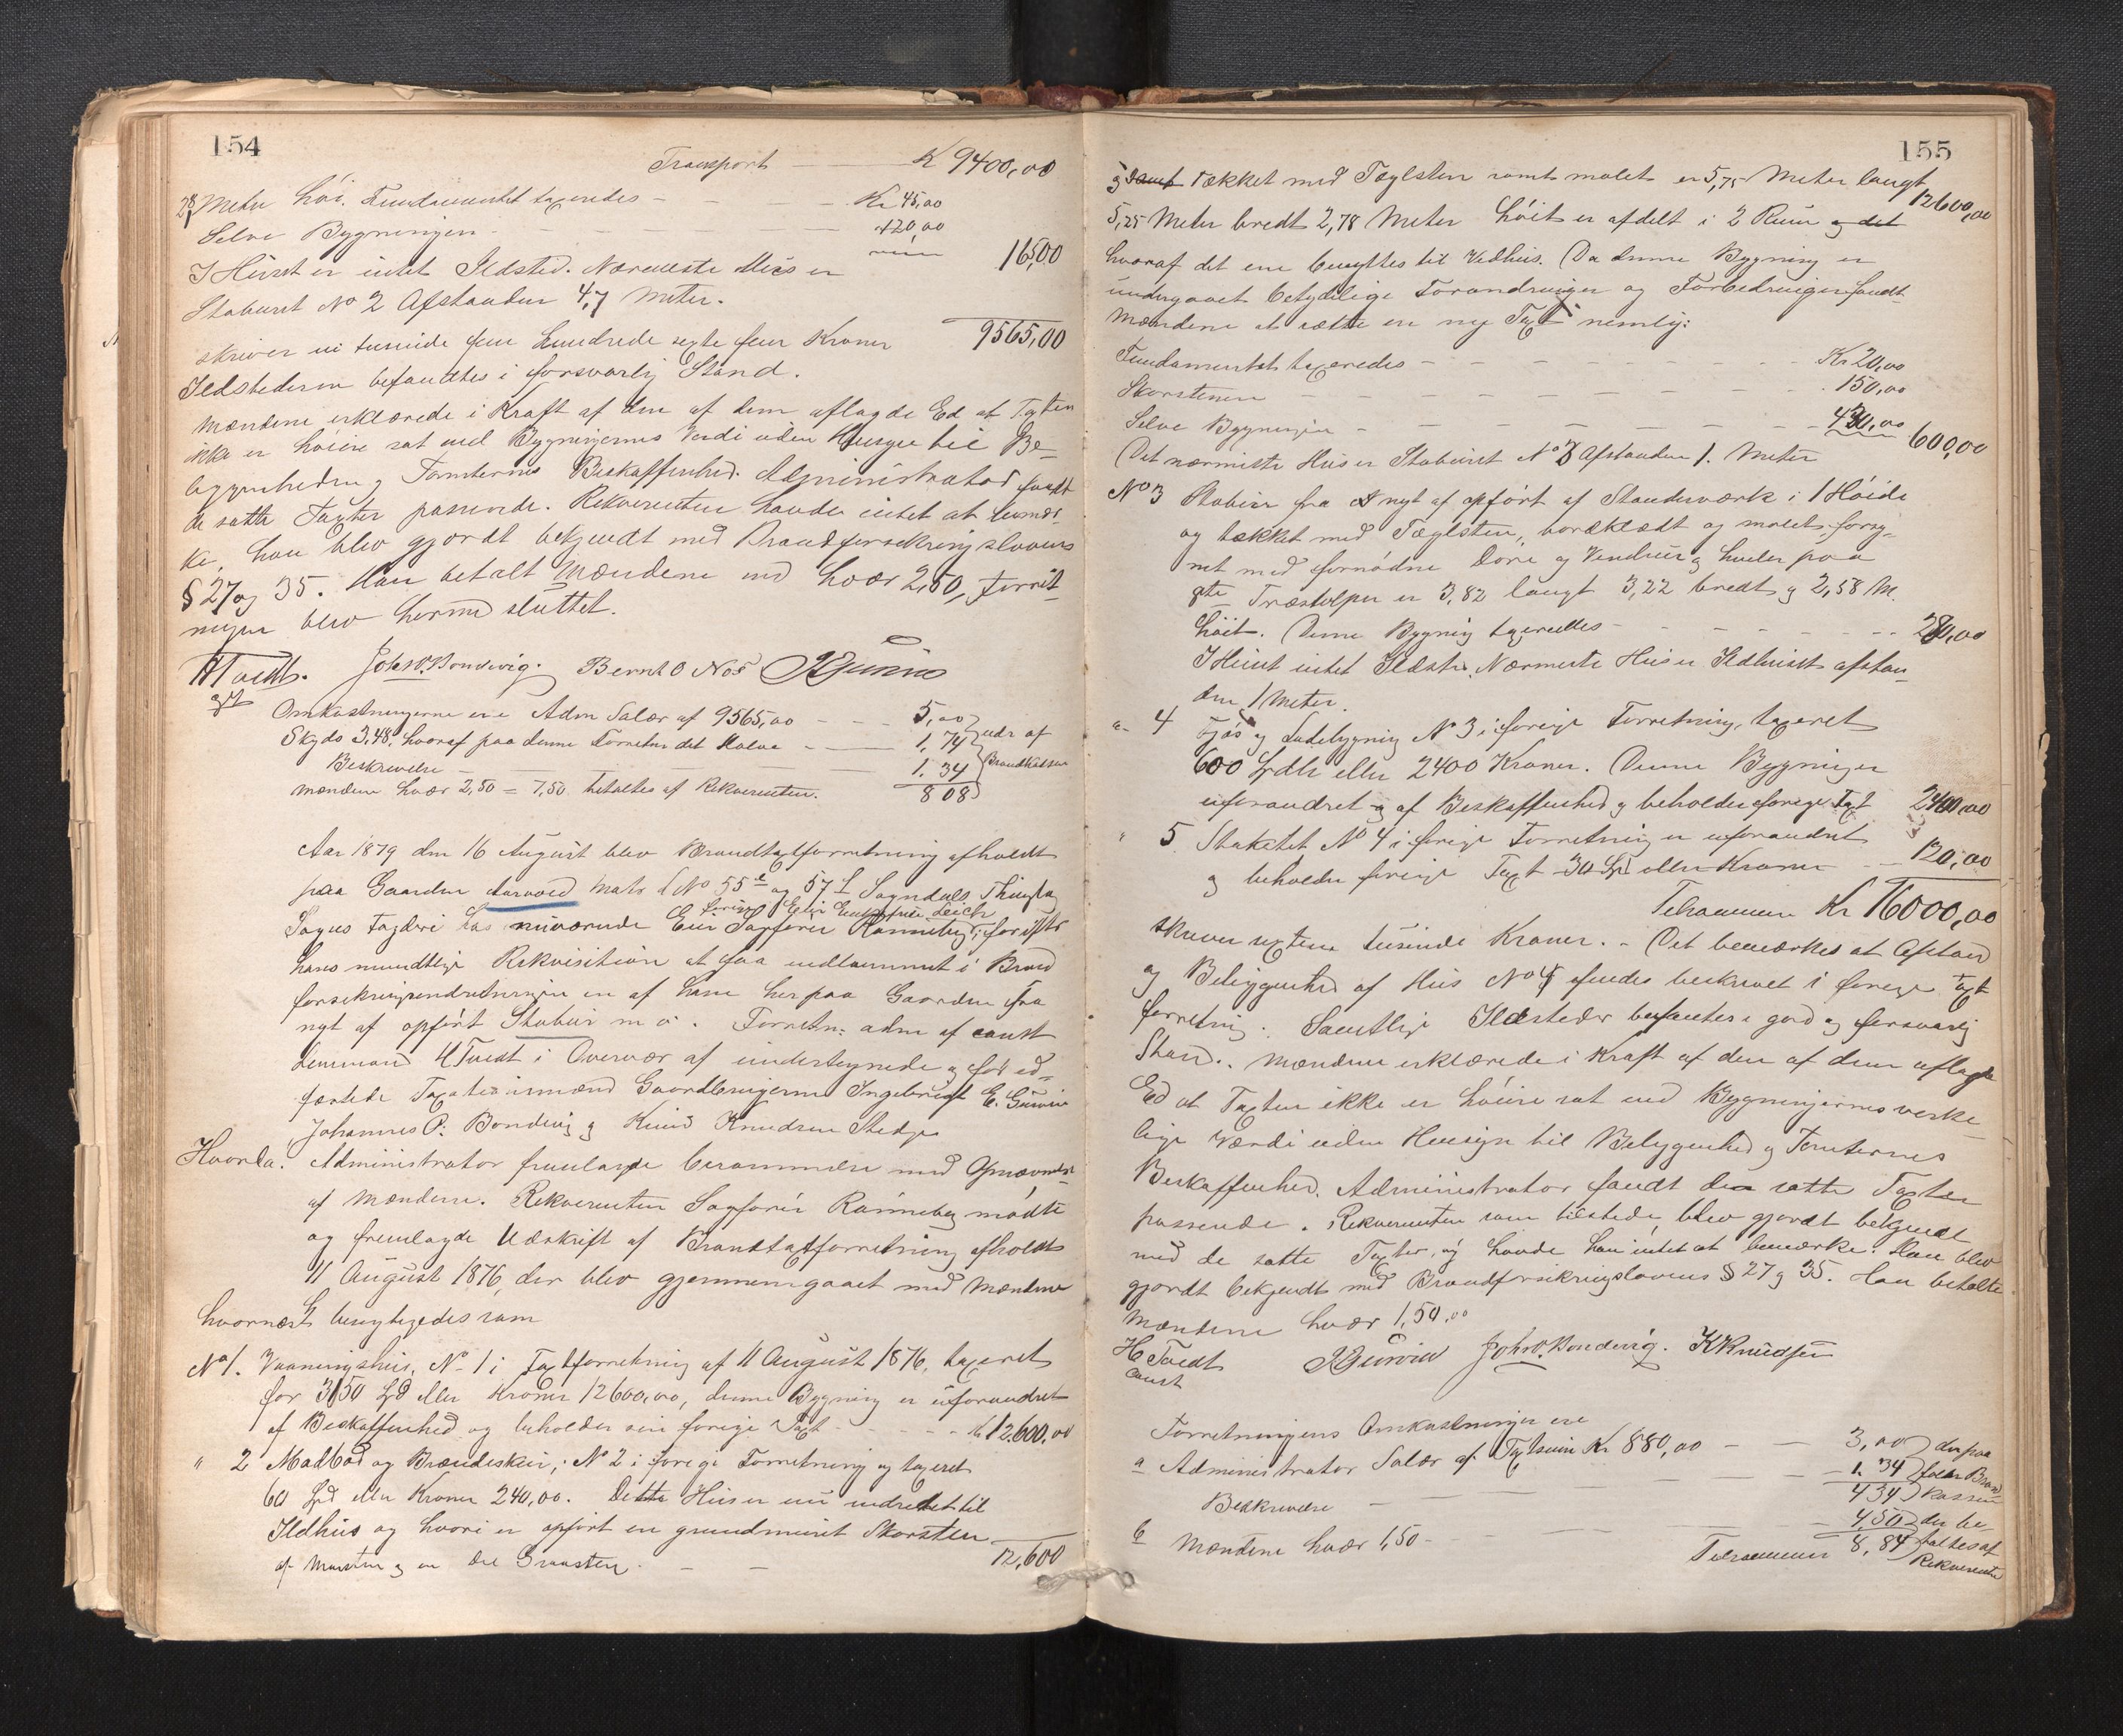 154
Transport — K 9400,00
2,8 Meter høi. Fundamentet taxeredes — Kr 45,00
Selve Bygningen — 120,00
I Huset er intet Ildsted. Nærmeste Huus er 165,00
Staburet No 2 Afstanden 4,7 Meter.
9565,00
skriver ni tusinde fem hundrede sexti fem Kroner
Ildstederne befandtes i forsvarlig Stand.
Mændene erklærede i Kraft af den af dem aflagde Ed at Taxten
ikke er høiere sat end Bygningernes Verdi uden Hensyn til Be-
liggenheden og Tomternes Beskaffenhed. Administrator fandt
de satte Taxter passende. Rekverenten havde intet at bemær-
ke, han blev gjordt bekjendt med Brandforsikringslovens
§ 27 og 35. Han betalt Mændene med hver 2,50, Forret-
ningen blev hermed sluttet.
H Tvedt. Johs O. Bondevig. Bernt O Nos
cst
Omkostningerne ere Adm Salær af 9565,00 — 5,00
Skyds 3,48, hvoraf paa denne Forretn det Halve — 1,74 udr af
Beskrivelse — 1,34 Brandkassen
Mændene hver 2,50 = 7,50 betaltes af Rekverenten. 8 08
Aar 1879 den 16 August blev Brandtaxtforretning afholdt
paa Gaarden Aarvold Matr L No 55 og 57 Sogndals Thinglag
forrige Eier Leich
Sogns Fogderi hos nuværende Eier Sagfører Rønneberg, for efter
hans mundtlige Rekvisition at faa indlemmet i Brand
forsikringsindretningen en af ham her paa Gaarden fra
nyt af opført Stabur m. v. Forretn: adm af const
Lensmand H Tvedt i Overvær af undertegnede og før ed-
fæstede Taxationsmænd Gaardbrugerne Ingebrigt E.
Johannes P. Bondevig og Knud Knudsen Stedje
Hvorda. Administrator fremlagde berammelse med Opnævnelse
af Mændene. Rekverenten Sagfører Rønneberg mødte
og fremlagde Udskrift af Brandtaxtforretning afholdt
11 August 1876, der blev gjennemgaaet med Mændene
hvornæst besigtigedes som
No 1. Vaaningshus, No 1 i Taxtforretning af 11 August 1876, taxeret
for 3150 Spd eller Kroner 12600,00, denne Bygning er uforandret
af Beskaffenhed og beholder sin forrige Taxt — K 12,600,00
" 2 Madbod og Brændeskur, No 2 i forrige Forretning og taxeret
60 Spd eller Kroner 240,00. Dette Hus er nu indredet til
Ildhus og hvori er opført en grundmuret Skorsten
af Mursten og en Del Graasten — 12,600
155
og samt tækket med Tæglsten samt malet er 5,75 Meter langt 12600,00
5,25 Meter bredt 2,78 Meter høit er afdelt i 2 Rum og det
hvoraf det ene benyttes til Vedhus. Da denne Bygning er
undergaaet betydelige Forandringer og Forbedringer fandt
Mændene at sætte en ny Taxt nemlig:
Fundamentet taxeredes — Kr 20,00
Skorstenen — 150,00
Selve Bygningen — 430,00 600,00
Det nærmeste Hus er Staburet No 3 Afstanden 1. Meter
No 3 Stabur fra nyt af opført af Standerværk i 1 Høide
og tækket med Tæglsten, bordklædt og malet, forsy-
net med fornødne Døre og Vinduer og hviler paa
8te Træstolper er 3,82 langt 3,22 bredt og 2,58 M.
høit. Denne Bygning taxeredes — 280,00
I Huset intet Ildsted. Nærmeste Hus er Ildhuset afstan-
den 1 Meter.
" 4 Fjøs og Ladebygning No 3 i forrige Forretning, taxeret
600 Spdlr eller 2400 Kroner. Denne Bygning er
uforandret og af Beskaffenhed og beholder forrige Taxt 2400,00
" 5 Stakitet No 4 i forrige Forretning er uforandret
og beholder forrige Taxt 30 Spd eller Kroner — 120,00
Tilsammen Kr 16000,00
skriver sexten tusinde Kroner. - Det bemærkes at Afstand
og Beliggenhed af Hus No 4 findes beskrevet i forrige Taxt
forretning. Samtlige Ildsteder befandtes i god og forsvarlig
Stand. Mændene erklærede i Kraft af den af dem aflagte
Ed at Taxten ikke er høiere sat end Bygningernes virke-
lige Værdi uden Hensyn til Beliggenhed og Tomternes
Beskaffenhed. Administrator fandt den satte Taxten
passende. Rekverenten som tilstede, blev gjordt bekjendt
med de satte Taxter, og havde han intet at bemærke. Han blev
gjordt bekjendt med Brandforsikringslovens § 27 og 35. Han betalte
Mændene hver 1,50.
H Tvedt Johs O. Bondevig. K Knudsen
const
Forretningens Omkostninger ere
a Administrator Salær af Taxtsum Kr 880,00 — 3,00 der paa
Beskrivelse — 1.34 falder Brand
4 34 Kassen
b Mændene hver 1,50 — 4,50 der be-
Tilsammen 8,84 taltes af
Rekverenten